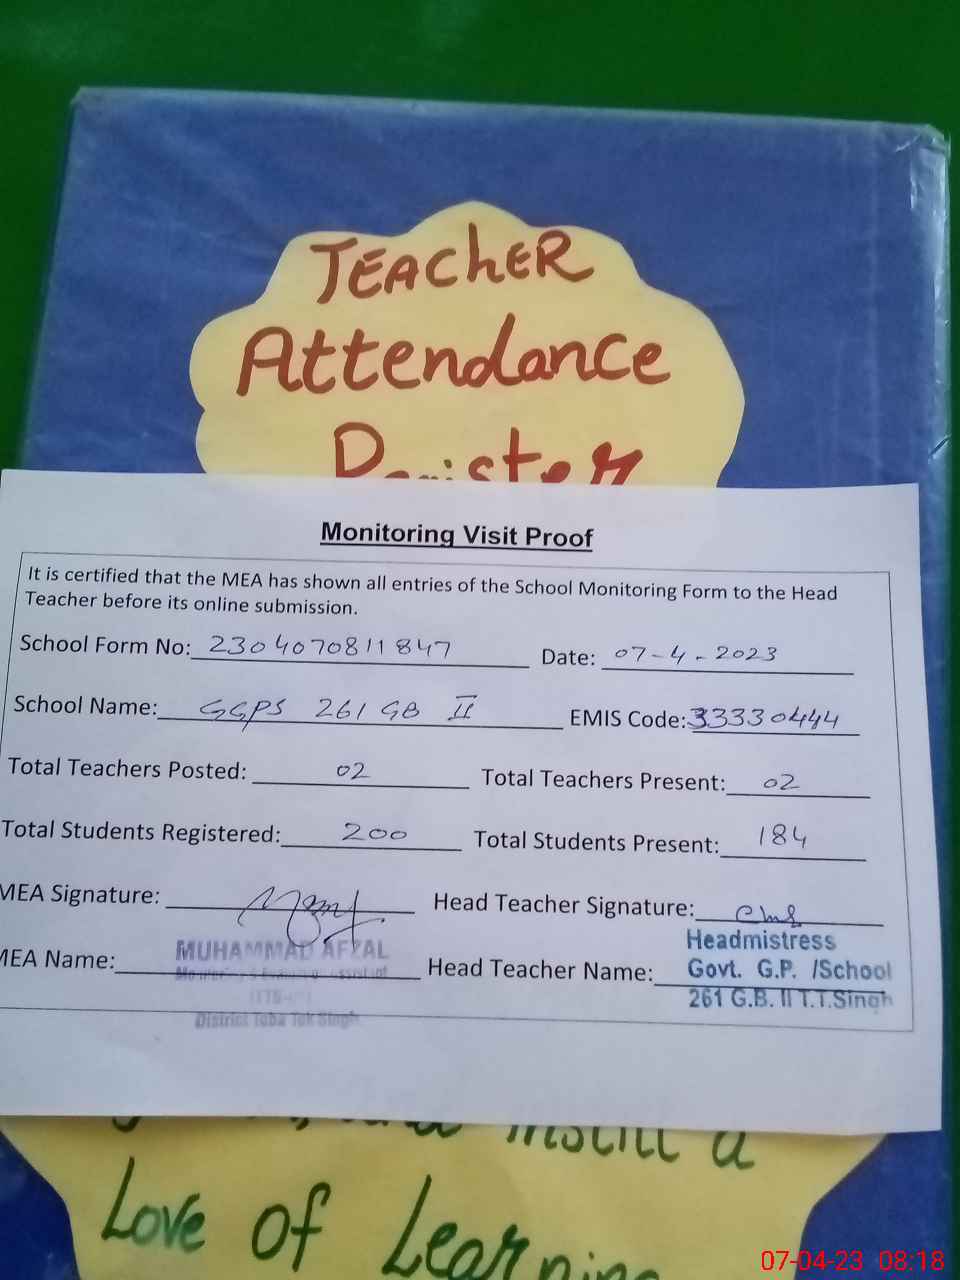 TEACHER
Attendance
Register
Monitoring Visit Proof
It is certified that the MEA has shown all entries of the School Monitoring Form to the Head
Teacher before its online submission.
School Form No: 2304070811847 Date: 07-4-2023
School Name: GGPS 261 GB II EMIS Code: 33330444
Total Teachers Posted: 02 Total Teachers Present: 02
Total Students Registered: 200 Total Students Present: 184
MEA Signature: Head Teacher Signature:
MEA Name: MUHAMMAD AFZAL Head Teacher Name: Headmistress
Govt. G.P. /School
261 G.B. II T.T.Singh
District Toba Tek Singh
instill a
Love of Learning
07-04-23 08:18